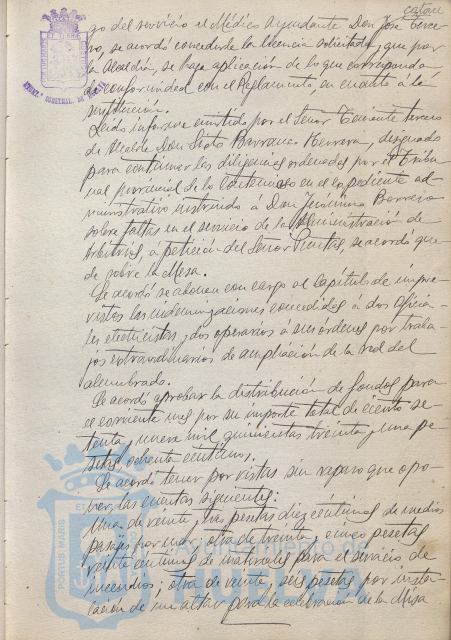 catorce
go del servicio el Médico Ayudante Don José Terce-
ro, se acordó concederle la licencia solicitada y que por
la Alcaldía, se haga aplicación de lo que corresponda
de conformidad con el Reglamento, en cuanto á la
sustitución.
Leído informe emitido por el Señor Teniente tercero
de Alcalde Don Sixto Barranco Herrera, designado
para continuar las diligencias ordenadas por el Tribu-
nal provincial de lo Contencioso en el expediente ad-
ministrativo instruido á Don Jerónimo Borrero
sobre faltas en el servicio de la Administración de
Arbitrios, á petición del Señor se acordó que-
de sobre la Mesa.
Se acordó se abonen con cargo al Capítulo de impre-
vistos las indemnizaciones concedidas á dos oficia-
les electricistas y dos operarios á sus órdenes por traba-
jos extraordinarios de ampliación de la red del
alumbrado.
Se acordó aprobar la distribución de fondos para
el corriente mes por su importe total de ciento se-
tenta y nueve mil quinientas treinta y una pe-
setas, ochenta céntimos.
Se acordó tener por vistas sin reparo que opo-
ner, las cuentas siguientes:
Una de veinte y tres pesetas diez céntimos de medios
pasajes por mar; otra de treinta y cinco pesetas
veinte céntimos de materiales para el servicio de
incendios; otra de veinte y seis pesetas por insta-
lación de un altar para la celebración de la Misa
PORTUS MARIS
Ayuntamiento de
HUELVA